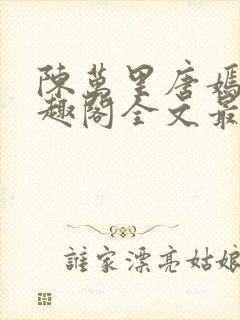 陳萬里唐嫣
趣閣全文最
誰家漂亮姑娘